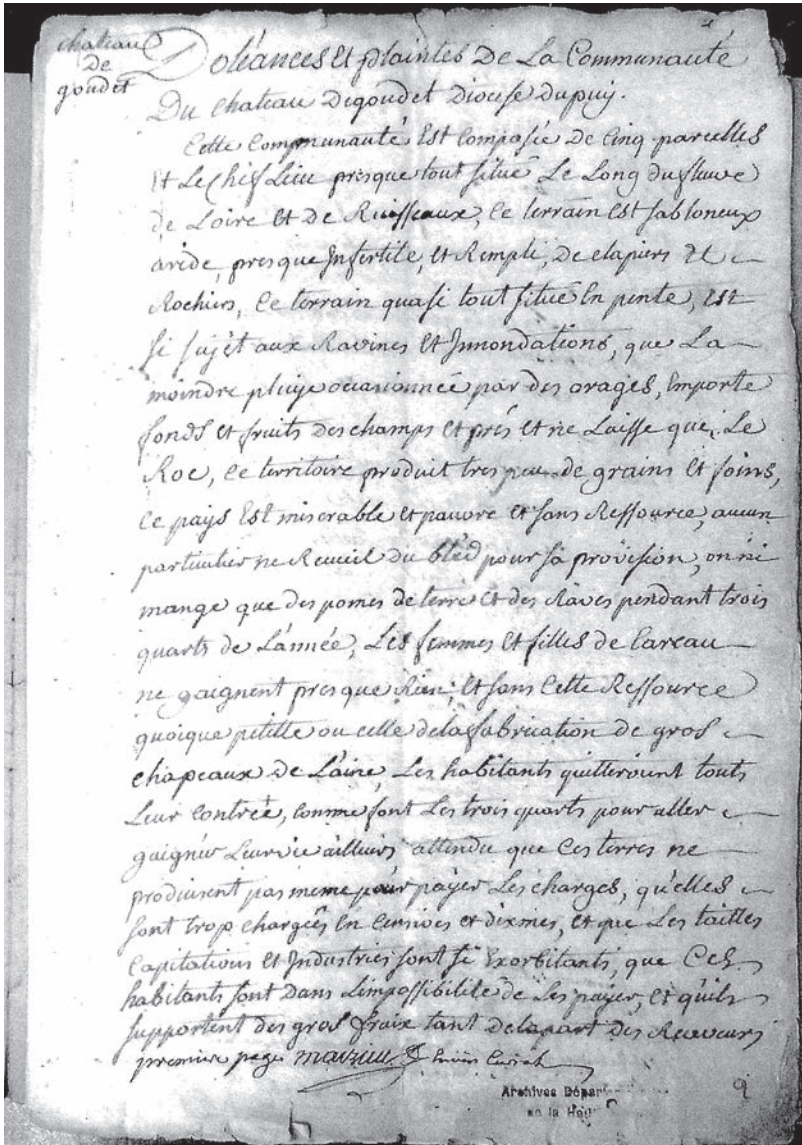 chateau
de
goudet
Doléances et plaintes De La Communauté
Du chateau Degoudet Diocese Dupuy.
Cette Communauté Est Composée De Cinq parcelles
Et Le Chef Lieu presque tout situé Le Long du fleuve
de Loire Et De Ruisseaux, Ce terrain Est sabloneux
aride, presque Infertile, et Rempli, De clapiers Et
Rochiers, Ce terrain quasi tout situé En pente, Est
si sujèt aux Ravines Et Innondations, que La
moindre pluye occasionnée par des orages, Emporte
fonds Et fruits des champs Et prés Et ne Laisse que, Le
Roc, Ce territoire produit tres peu de grains Et foins,
Ce pays Est miserable Et pauvre Et sans Ressource, aucun
particulier ne Recueil du bléd pour sa provision, on ni
mange que des pomes de terre Et des Raves pendant trois
quarts de L'année, Les femmes Et filles de Careau
ne gaignent presque Rien, Et sans Cette Ressource
quoique petitte ou celle de la fabrication de gros
chapeaux de Laine, Les habitants quitteroient touts
Leur Contrée, Comme font Les trois quarts pour aller
gaigner Leur vie ailleurs attendu que Ces terres ne
produisent pas meme pour payer Les charges, qu'elles
sont trop chargées En Censives et dixmes, Et que Les tailles
Capitations Et Industries sont si Exorbitants, que Ces
habitants sont Dans L'impossibilité de Les payer, Et qu'ils
supportent des gros fraix tant de la part des Receveurs
premiere page
Archives Dépar
de la Hau
9